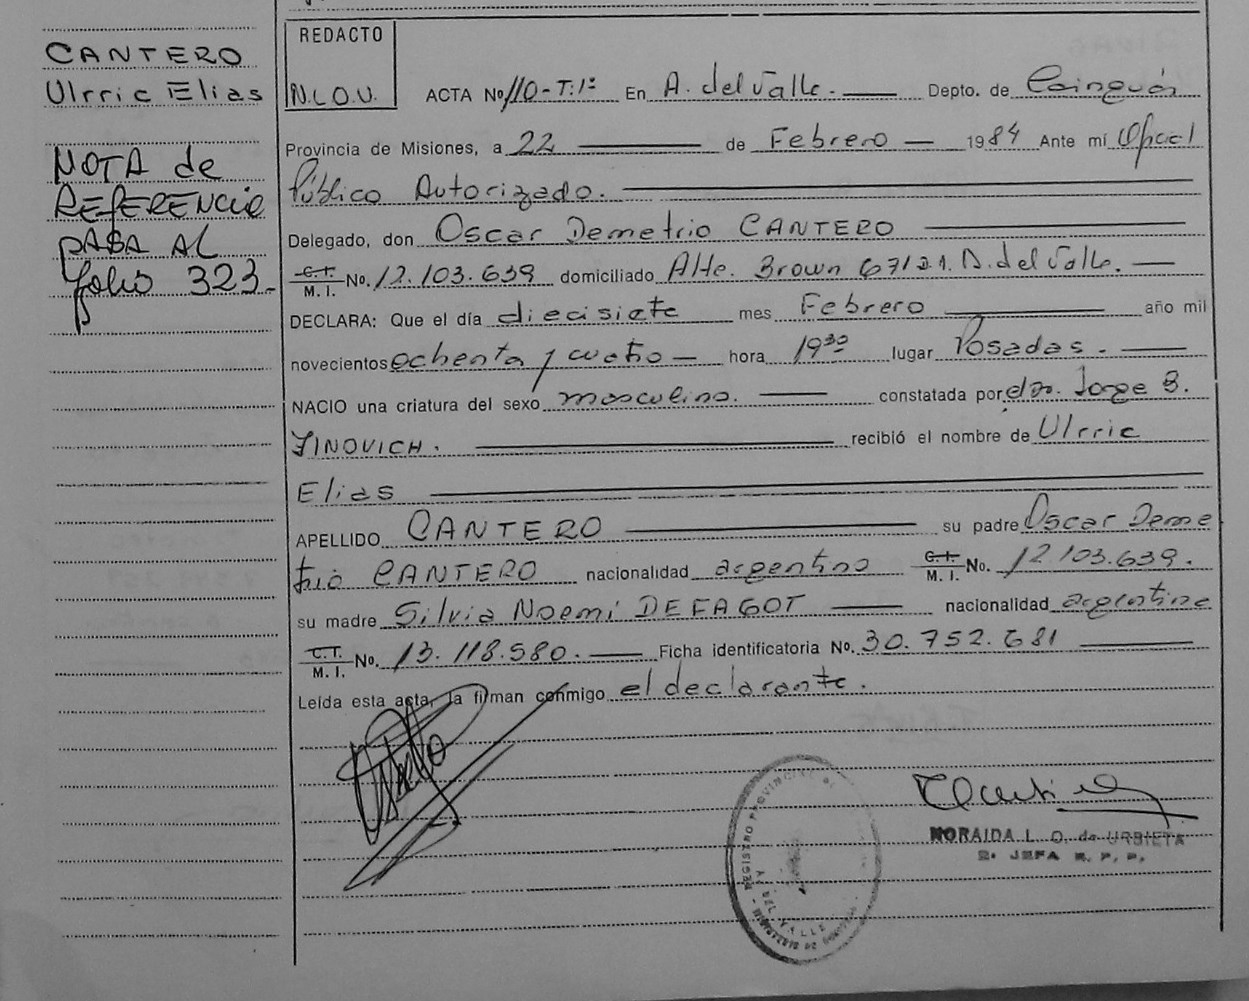 CANTERO
Ulrric Elias
NOTA de
REFERENCIA
PASA AL
folio 323-
REDACTO
N.L.O.U.
ACTA No 110-T:1º En A. del Valle. Depto. de Cainguás
Provincia de Misiones, a 22 de Febrero 1984 Ante mí Oficial
Público Autorizado.
Delegado, don Oscar Demetrio CANTERO
C.I. M. I. No. 12.103.639 domiciliado Alte. Brown A. del Valle.
DECLARA: Que el día diecisiete mes Febrero año mil
novecientos ochenta y cuatro hora 19³⁰ lugar Posadas.
NACIO una criatura del sexo masculino. constatada por el Dr. Jorge B.
ZINOVICH. recibió el nombre de Ulrric
Elias
APELLIDO CANTERO su padre Oscar Deme
trio CANTERO nacionalidad argentino C.I. M. I. No. 12.103.639.
su madre Silvia Noemí DEFAGOT nacionalidad argentina
C.I. M. I. No. 13.118.580. Ficha identificatoria No. 30.752.681
Leída esta acta, la firman conmigo el declarante.
REGISTRO PROVINCIAL DE
A. DEL VALLE
NORAIDA L. O. de URBIETA
2ª JEFA R. P. P.